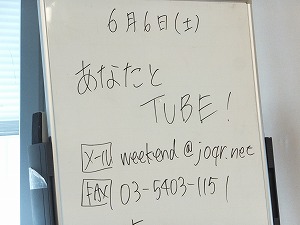 6月6日(土)
あなたと
TUBE!
メール weekend@joqr.net
FAX 03-5403-1151